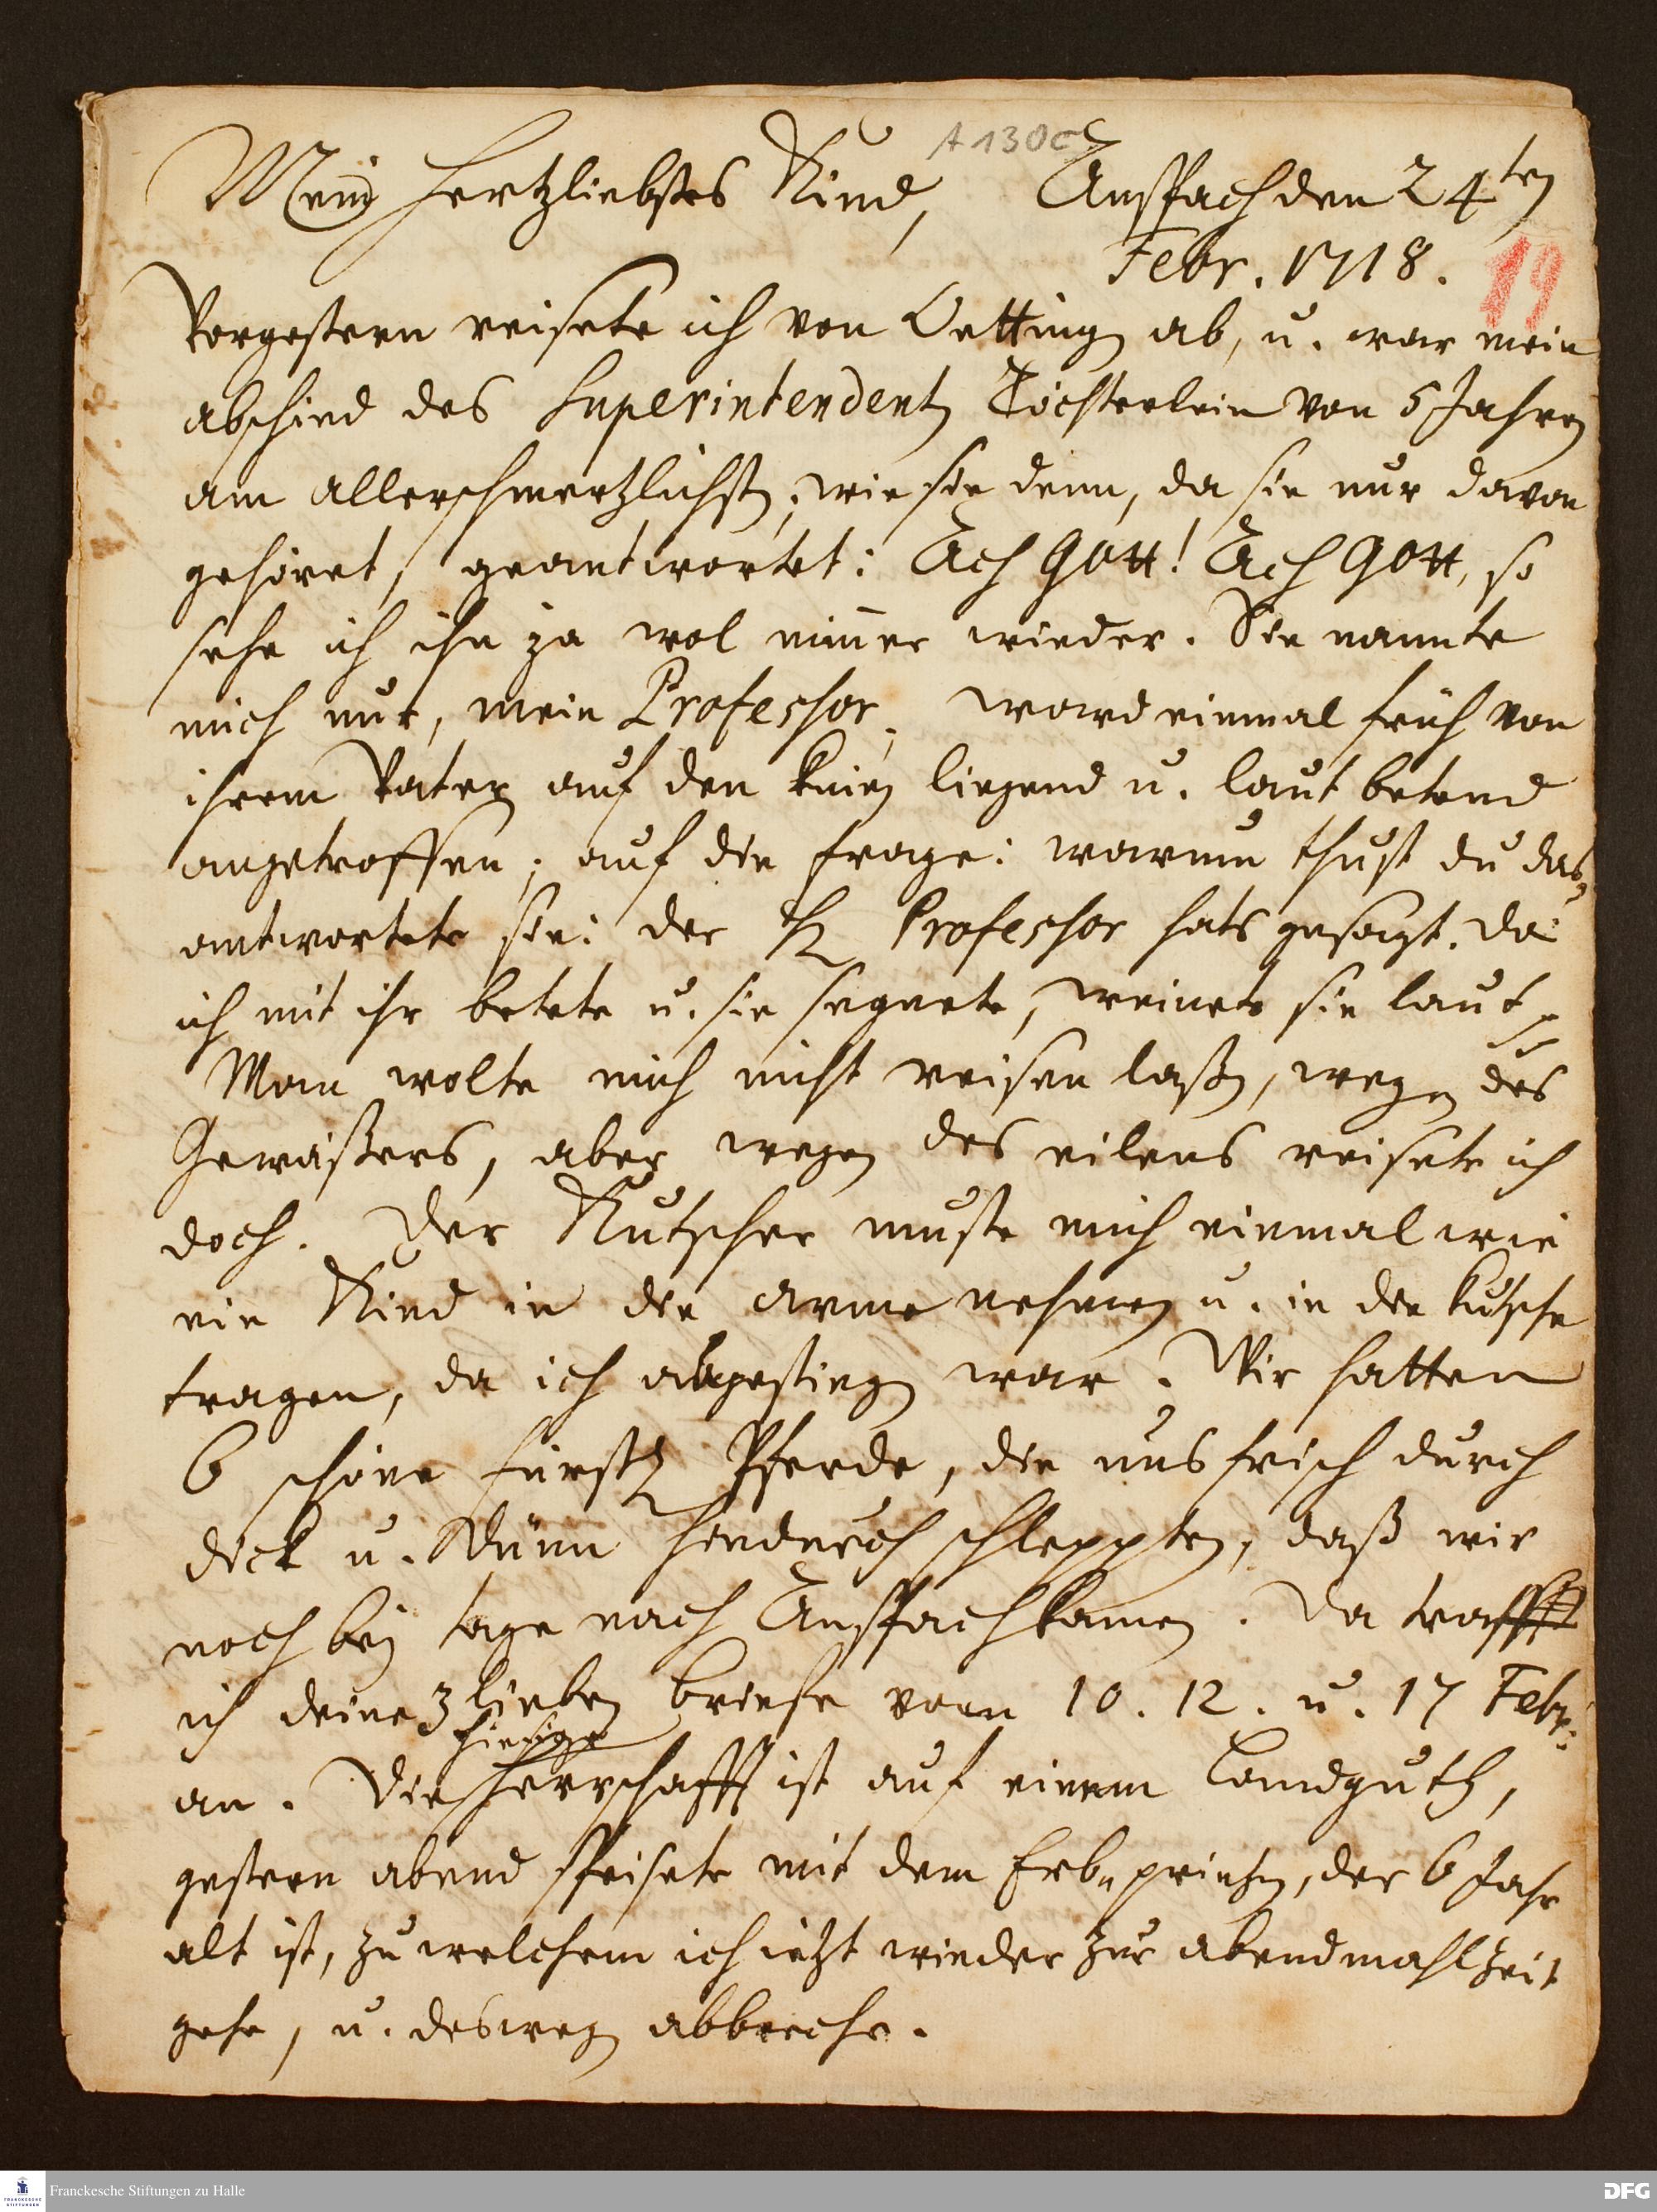 A 130c
Mein hertzliebstes Kind, Anspach den 24ten
Febr. 1718.
19
Vorgestern reisete ich von Oetting ab, u. war mein
abschied des Superintendent Töchterlein von 5 Jahren
am allerschmertzlichsten; wie sie denn, da sie nur davon
gehöret, geantwortet: Ach Gott! Ach Gott, so
sehe ich ihn ja wol nim̄er wieder. Sie nannte
mich nur, mein Professor, ward einmal früh von
ihrem Vater auf den knien liegend u. laut betend
angetroffen; auf die frage: warum thust du das,
antwortete sie: der H Professor hats gesagt. Da
ich mit ihr betete u. sie segnete, weinete sie laut.
Man wolte mich nicht reisen laßen, wegen des
Gewäßers, aber wegen des eilens reisete ich
doch. Der Kutscher muste mich einmal wie
ein Kind in die arme nehmen u. in die kutsche
tragen, da ich abgestiegen war. Wir hatten
6 schöne fürstl Pferde, die uns frisch durch
dick u. dünn hindurch schleppten, daß wir
noch bey tage nach Anspach kamen. Da traff
ich deine 3 lieben briefe vom 10. 12. u. 17 Febr.
hiesige
an. Die Herrschafft ist auf einem Landguth,
gestern abend speisete mit dem Erb-printzen, der 6 Jahr
alt ist, zu welchem ich ietzt wieder zur abendmahlzeit
gehe, u. deswegen abbreche.
Franckesche Stiftungen zu Halle
DFG